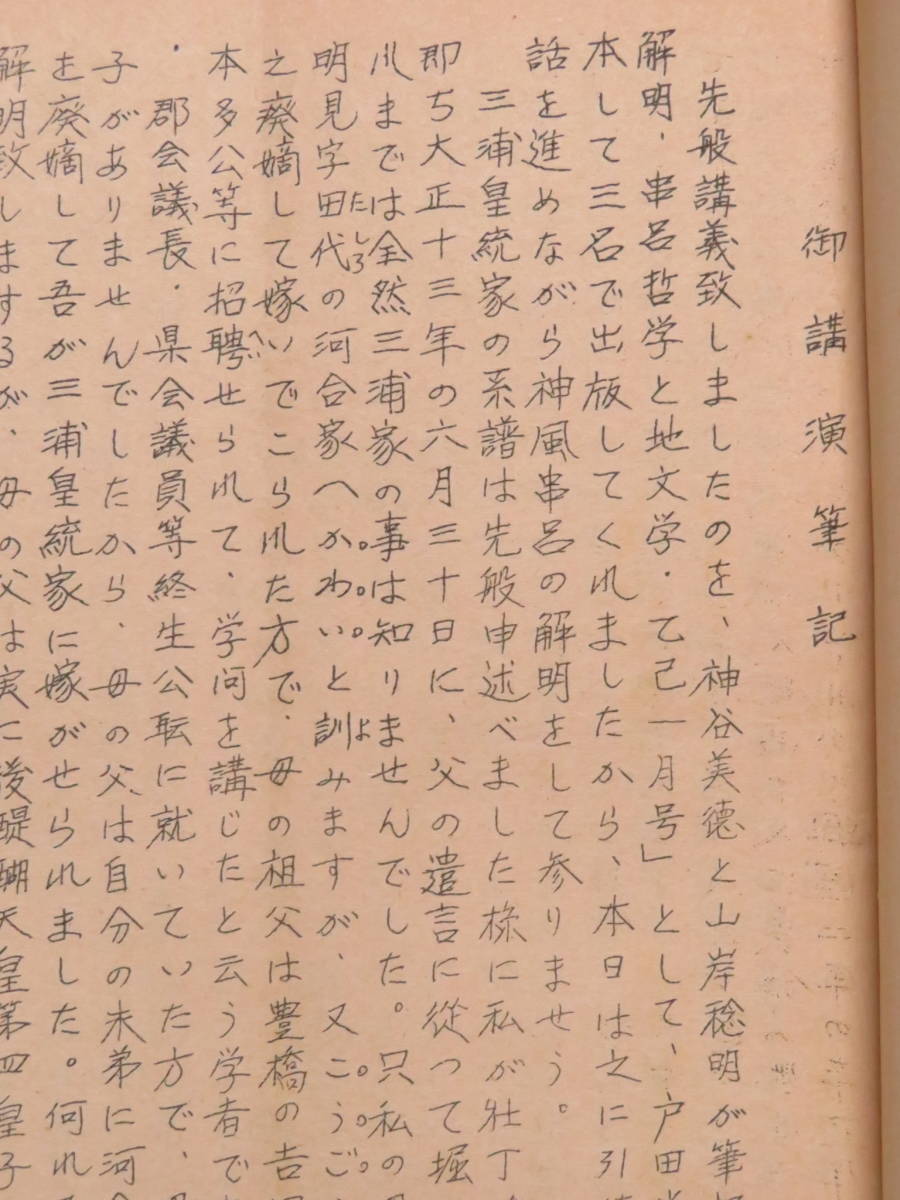 御講演筆記
先般講義致しましたのを、神谷美徳と山岸稔明が筆
解明・串呂哲学と地文学・乙己一月号」として、戸田
本して三名で出版してくれましたから、本日は之に引
話を進めながら神風串呂の解明をして参りませう。
三浦皇統家の系譜は先般申述べました様に私が壮丁
即ち大正十三年の六月三十日に、父の遺言に従つて堀
れまでは全然三浦家の事は知りませんでした。只私の
明見字田代たしろの河合家へかわいと訓よみますが、又こうご
之廃嫡して嫁いでこられた方で、母の祖父は豊橋の吉
本多公等に招聘へいせられて、学問を講じたと云う学者で
・郡会議長・県会議員等終生公転に就いていた方で、
子がありませんでしたから、母の父は自分の末弟に河
を廃嫡して吾が三浦皇統家に嫁がせられました。何れ
解明致しまするが、母の父は実に後醍醐天皇第四皇子